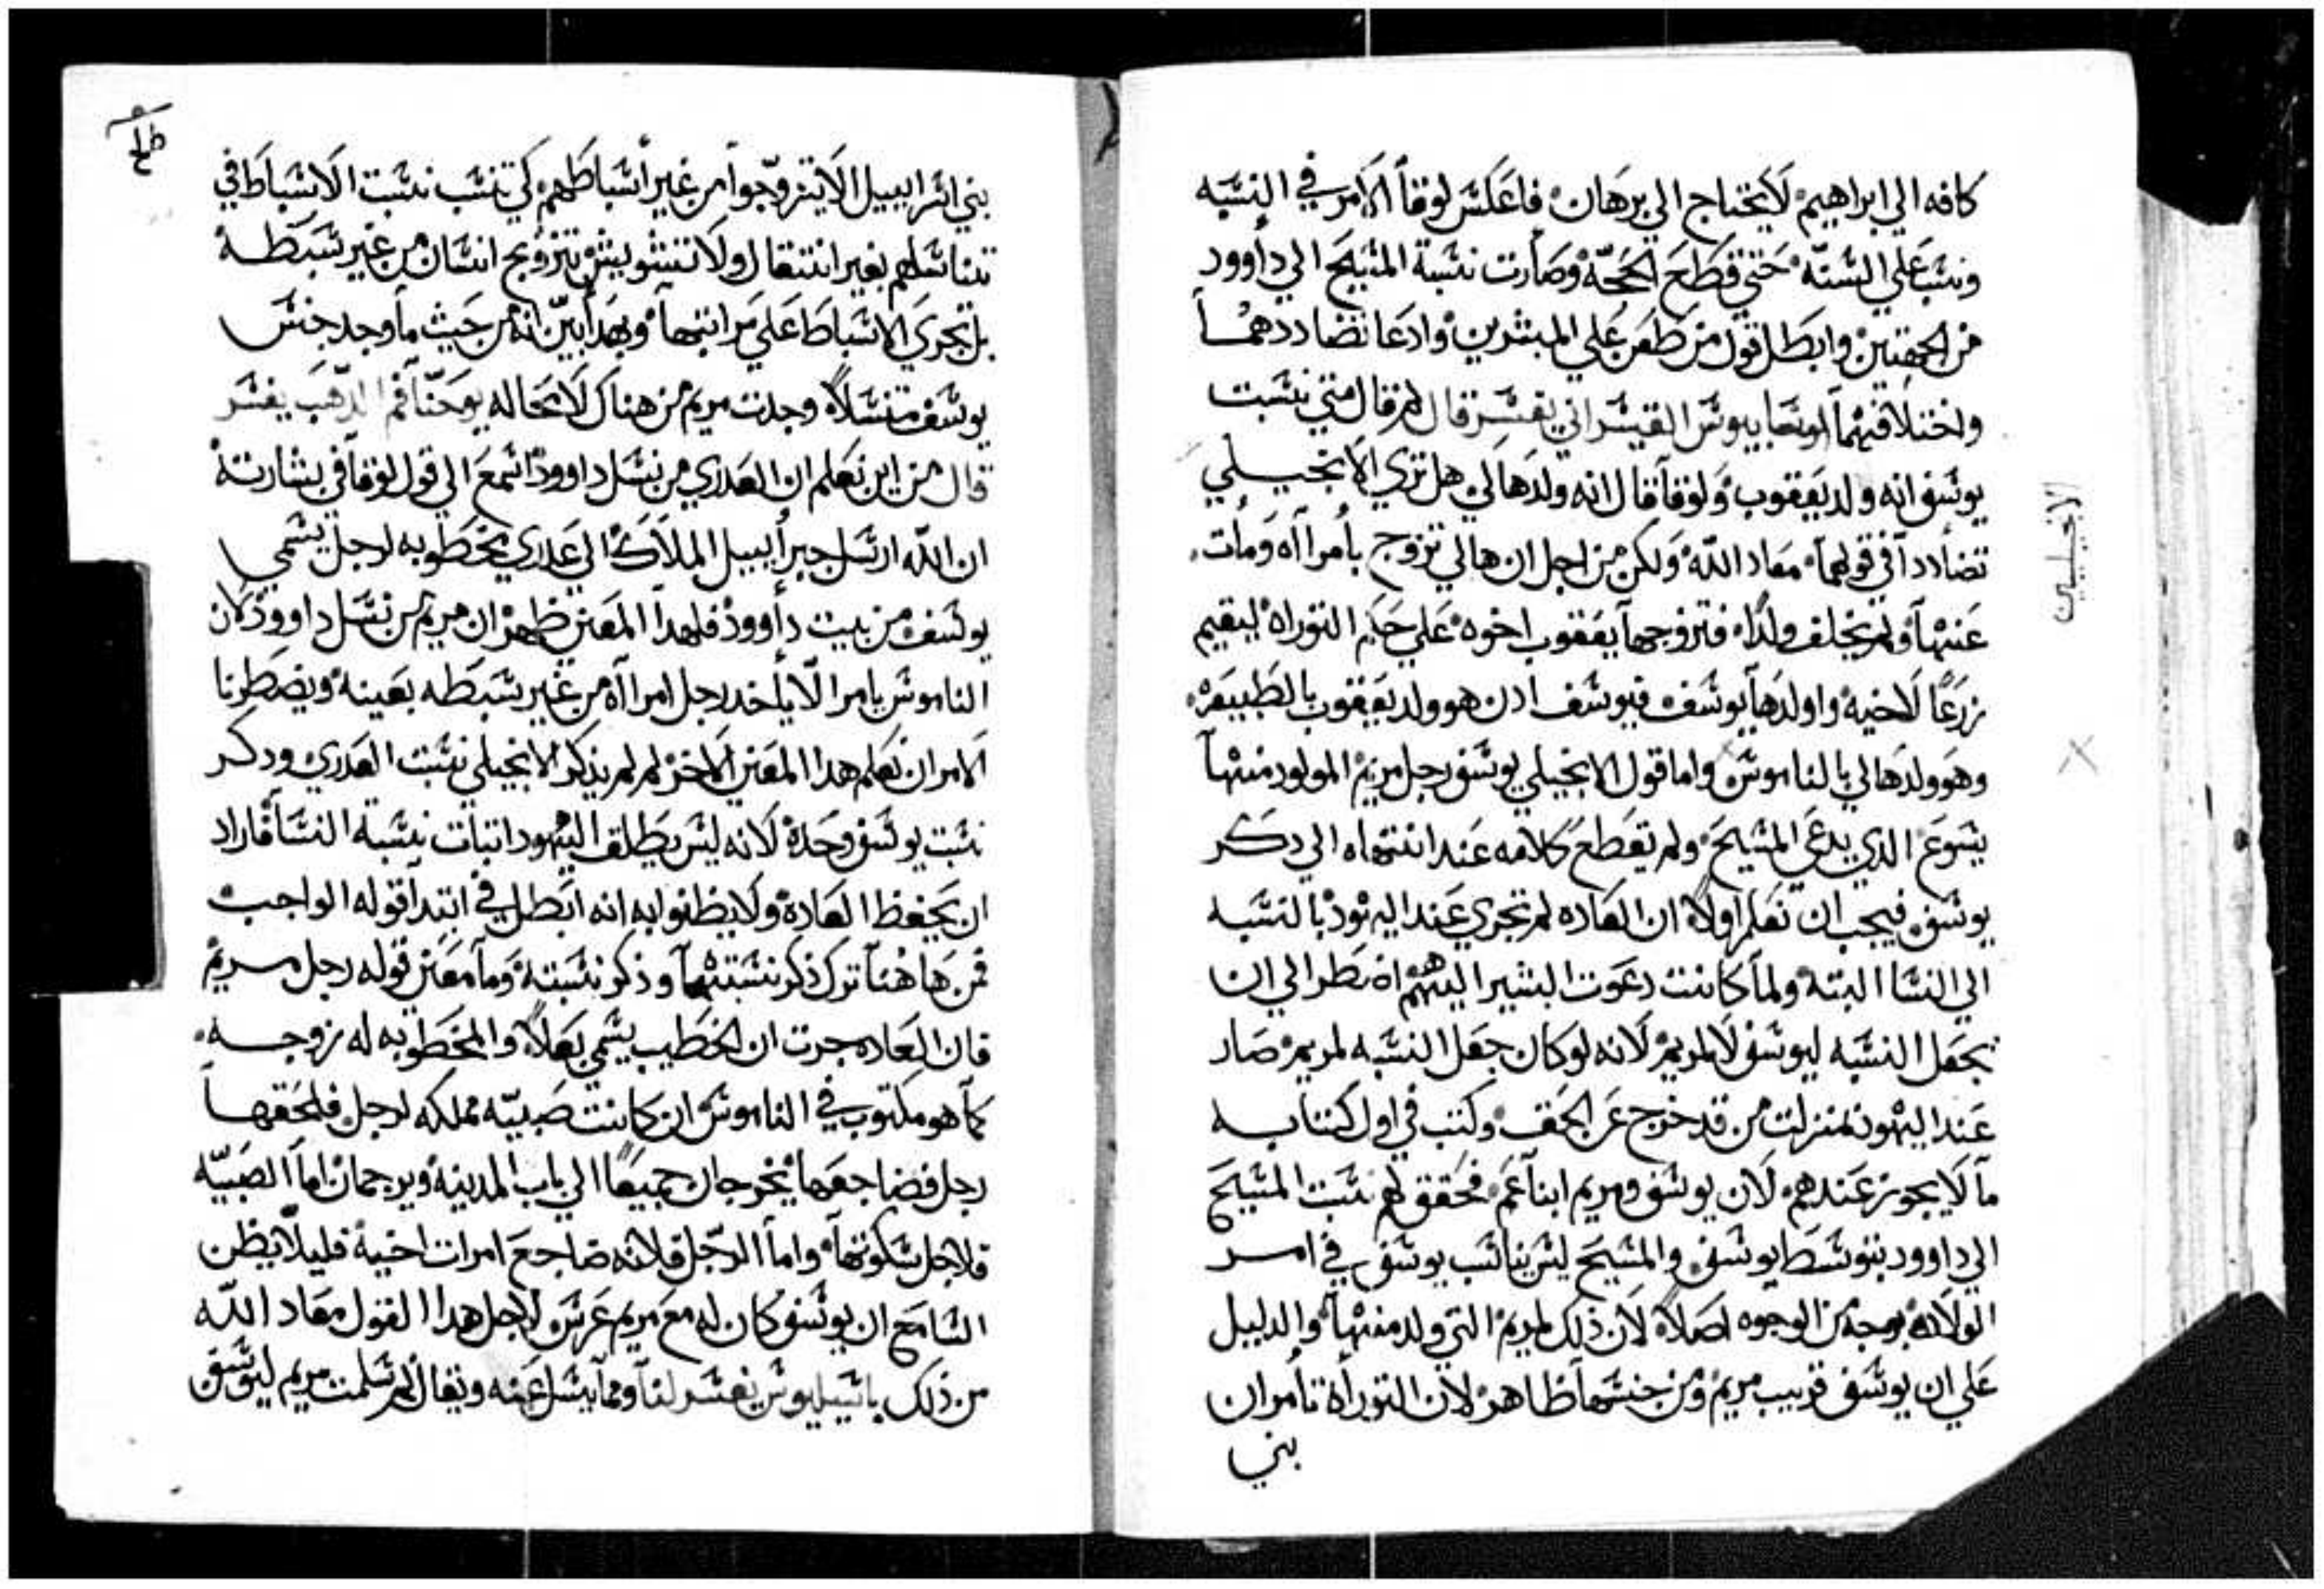 كافه الي ابراهيم لا يحتاج الي برهان فاعكس لوقا الامر في النسبه
ونسب علي السنه حتي قطع الحجه وصارت نسبة المسيح الي داوود
من الجهتين وابطل قول من طعن علي المبشرين وادعا تضاددهما
واختلافهما اوسابيوس القيسراني يفسر قال لم قال متي نسبت
يوسف انه ولد يعقوب ولوقا قال انه ولد هالي هل تري الانجيلي
تضاددا في قولهما معاد الله ولكن من اجل ان هالي تزوج بامراه ومات
عنها ولم يخلف ولدا فتزوجها يعقوب اخوه علي حكم التوراه ليقيم
زرعا لاخيه واولدها يوسف فيوسف ادن هو ولد يعقوب بالطبيعه
وهو ولد هالي بالناموس واما قول الانجيلي يوسف رجل مريم المولود منها
يسوع الدي يدعي المسيح ولم يقطع كلامه عند انتهاه الي دكر
يوسف فيجب ان تعلم اولا ان العاده لم تجري عند اليهود بالنسبه
الي النسا البته ولما كانت دعوت البشير اليهم اضطر الي ان
يجعل النسبه ليوسف لا لمريم لانه لو كان جعل النسبه لمريم صار
عند اليهود بمنزلت من قد خرج عن الحق وكتب في اول كتابه
ما لا يجوز عندهم لان يوسف ومريم ابنا عم فحقق لهم نسبت المسيح
الي داوود بتوسط يوسف والمسيح ليس يناسب يوسف في امر
الولاده بوجه من الوجوه اصلا لان ذلك لمريم التي ولد منها والدليل
علي ان يوسف قريب مريم ومن جنسها ظاهر لان التوراة تامر ان
بني
الانجيليين
بني اسراييل الا يتزوجوا من غير اسباطهم كي تنسب نسبت الاسباط في
تناسلهم بغير انتقال ولا تتشويش بتزويج انسان من غير سبطه
بل تجري الاسباط علي مراتبها وبهدا يبين انه من حيث ما وجد جنس
يوسف متنسلا وجدت مريم من هناك لا محاله يوحنا فم الدهب يفسر
قال من اين نعلم ان العدري من نسل داوود اسمع الي قول لوقا في بشارته
ان الله ارسل جبراييل الملاك الي عدري مخطوبه لرجل يسمي
يوسف من بيت داوود فلهدا المعني ظهر ان مريم من نسل داوود لان
الناموس يامر الا ياخد رجل امراه من غير سبطه بعينه ويضطرنا
الامر ان نعلم هدا المعني الاخر لم لم يذكر الانجيلي نسبت العدري ودكر
نسبت يوسف وحده لانه ليس يطلق اليهود اتبات نسبة النسا فاراد
ان يحفظ العادة ولا يظنوا به انه ابطل في ابتدا قوله الواجب
فمن هاهنا ترك ذكر نسبتها وذكر نسبته وما معني قوله رجل مريم
فان العاده جرت ان الخطيب يسمي بعلا والمخطوبه له زوجه
كما هو مكتوب في الناموس ان كانت صبيه مملكه لرجل فلحقها
رجل فضاجعها يخرجان جميعا الي باب المدينه ويرجمان اما الصبيه
فلاجل سكوتها واما الرجل فلانه ضاجع امرات اخيه فليلا يظن
السامع ان يوسف كان له مع مريم عرس لاجل هدا القول معاد الله
من ذلك باسيليوس يفسر لنا ومما يسل عنه ويقال لم سلمت مريم ليوسف